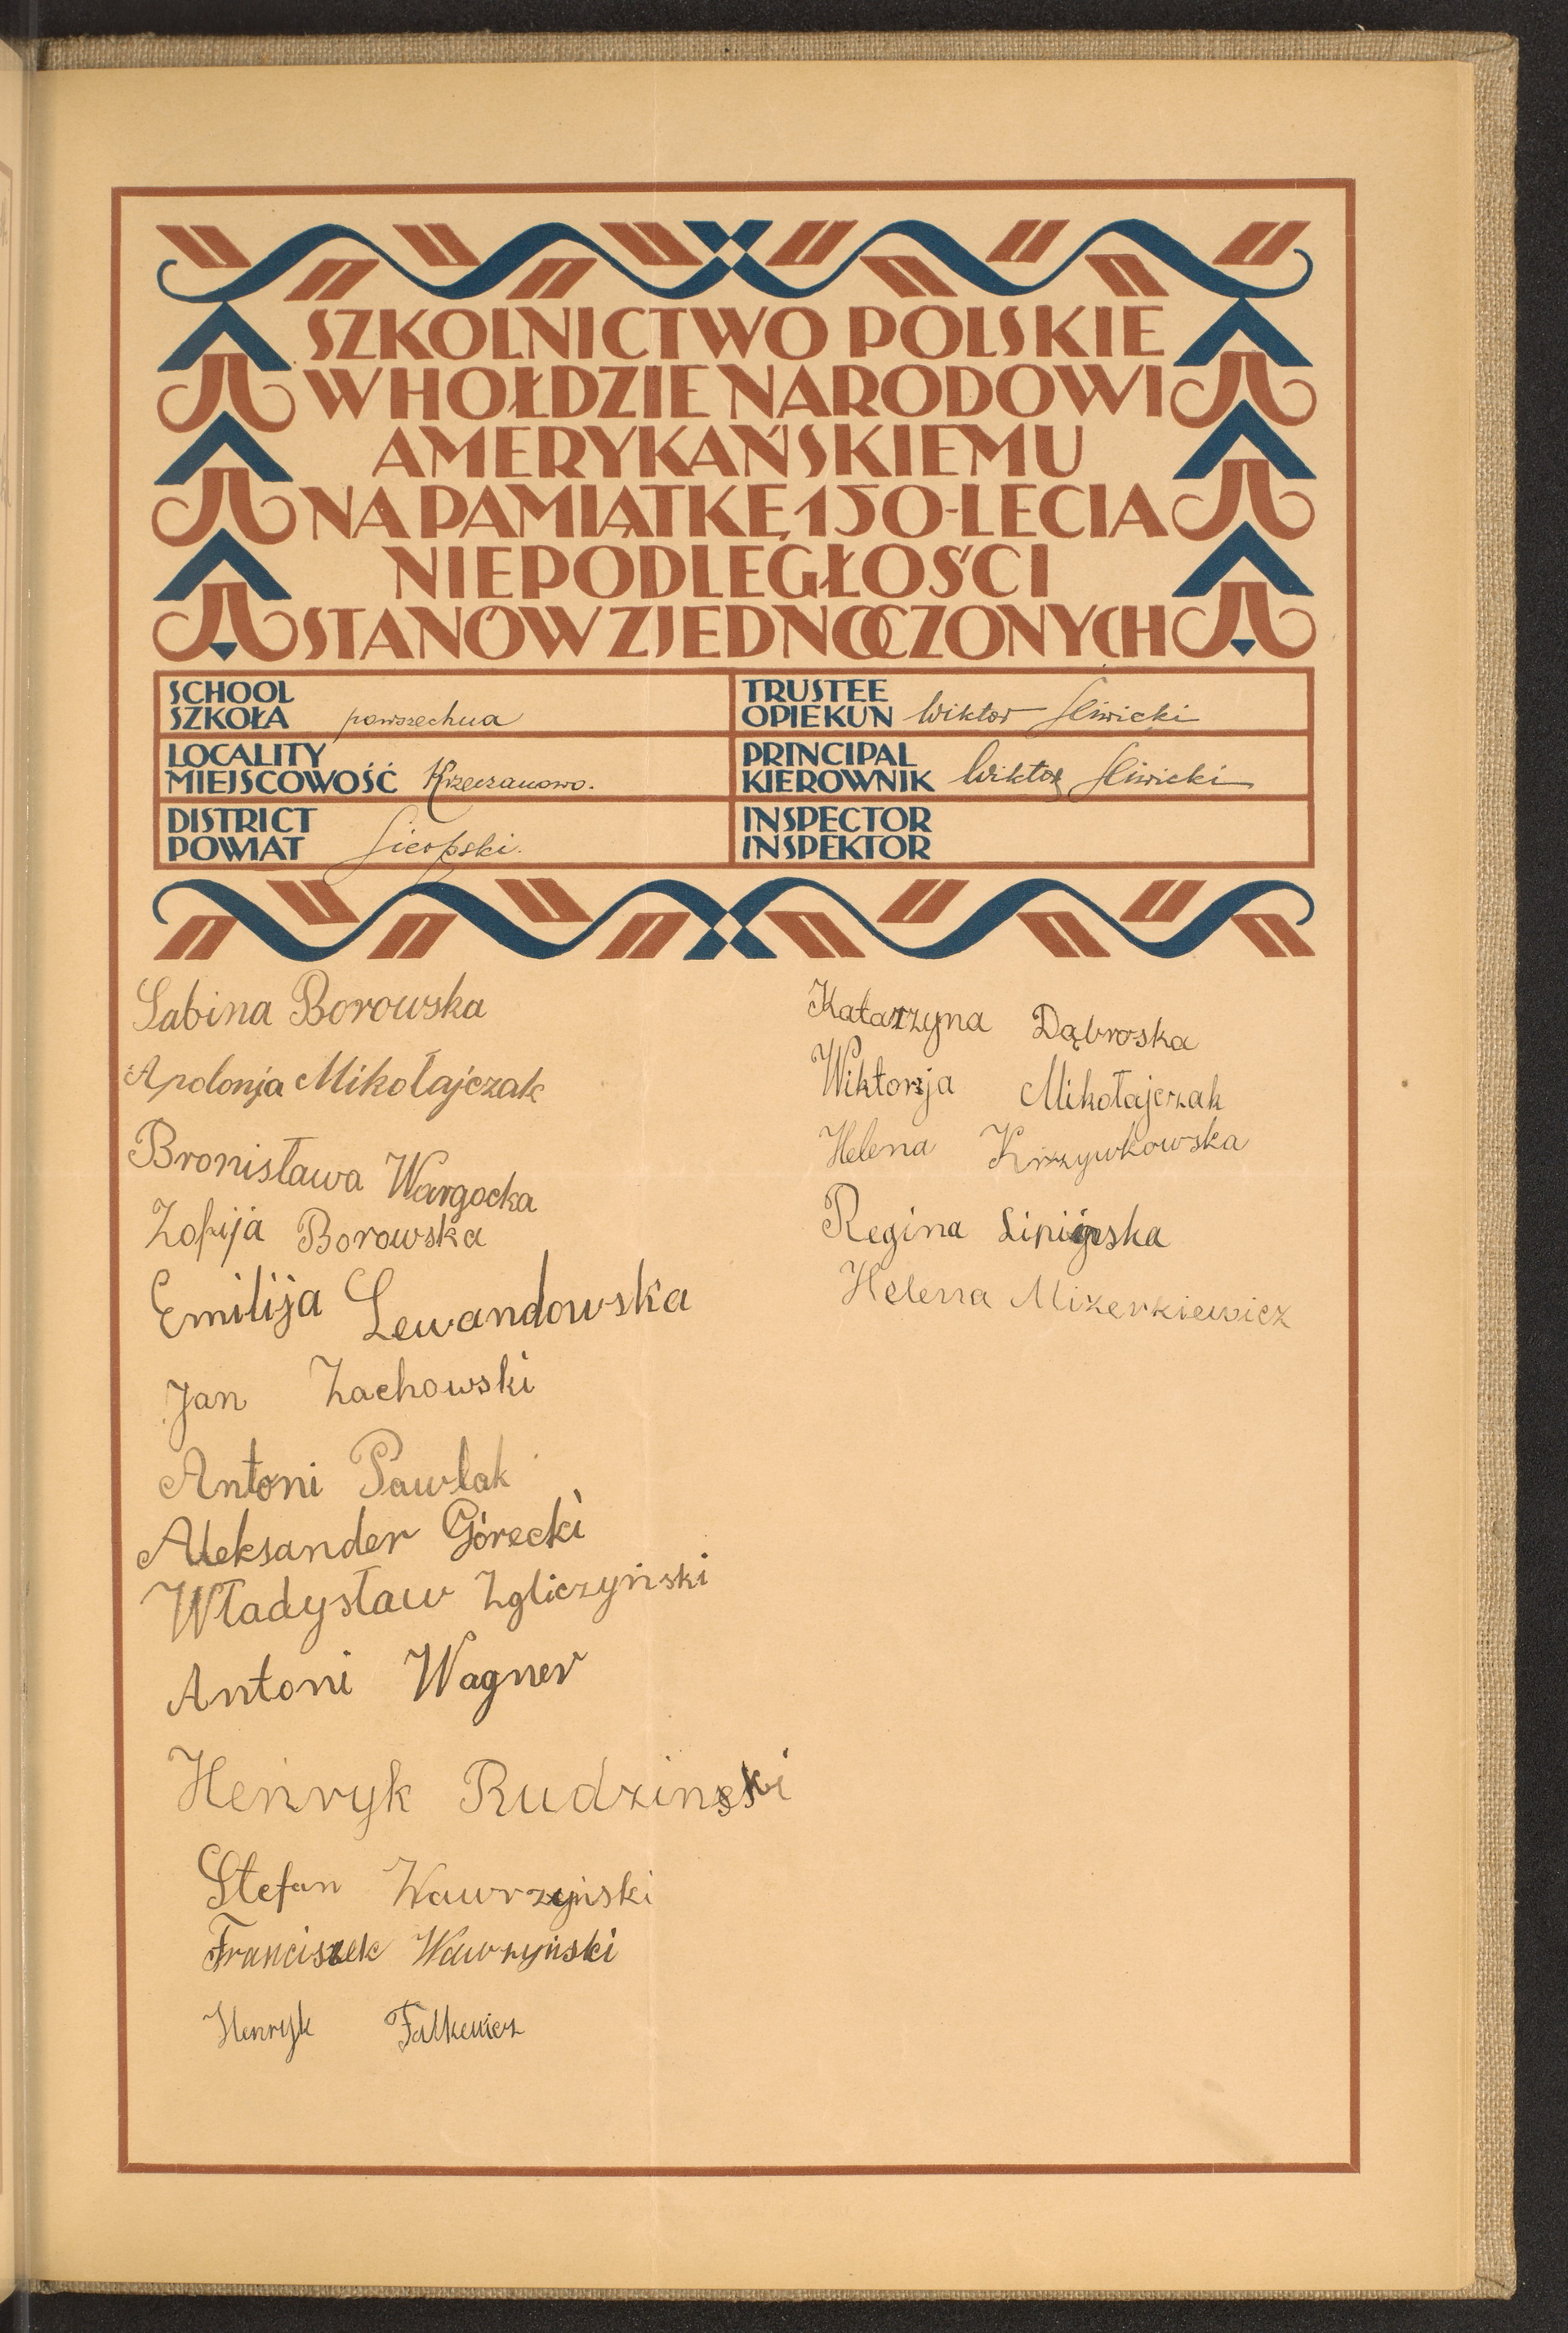 SZKOLNICTWO POLSKIE
W HOŁDZIE NARODOWI
AMERYKAŃSKIEMU
NA PAMIĄTKĘ 150-LECIA
NIEPODLEGŁOŚCI
STANÓW ZJEDNOCZONYCH
SCHOOL
SZKOŁA powszechna
TRUSTEE
OPIEKUN Wiktor Śliwicki
LOCALITY
MIEJSCOWOŚĆ Krzeczanowo.
PRINCIPAL
KIEROWNIK Wiktor Śliwicki
DISTRICT
POWIAT Sierpski.
INSPECTOR
INSPEKTOR
Sabina Borowska
Apolonja Mikołajczak
Bronisława Wargocka
Zofija Borowska
Emilija Lewandowska
Jan Zachowski
Antoni Pawlak
Aleksander Górecki
Władysław Zgliczyński
Antoni Wagner
Henryk Rudzinski
Stefan Wawrzyński
Franciszek Wawrzyński
Henryk Falkewicz
Katarzyna Dąbroska
Wiktorja Mikołajczak
Helena Krzywkowska
Regina
Helena Mizerkiewicz